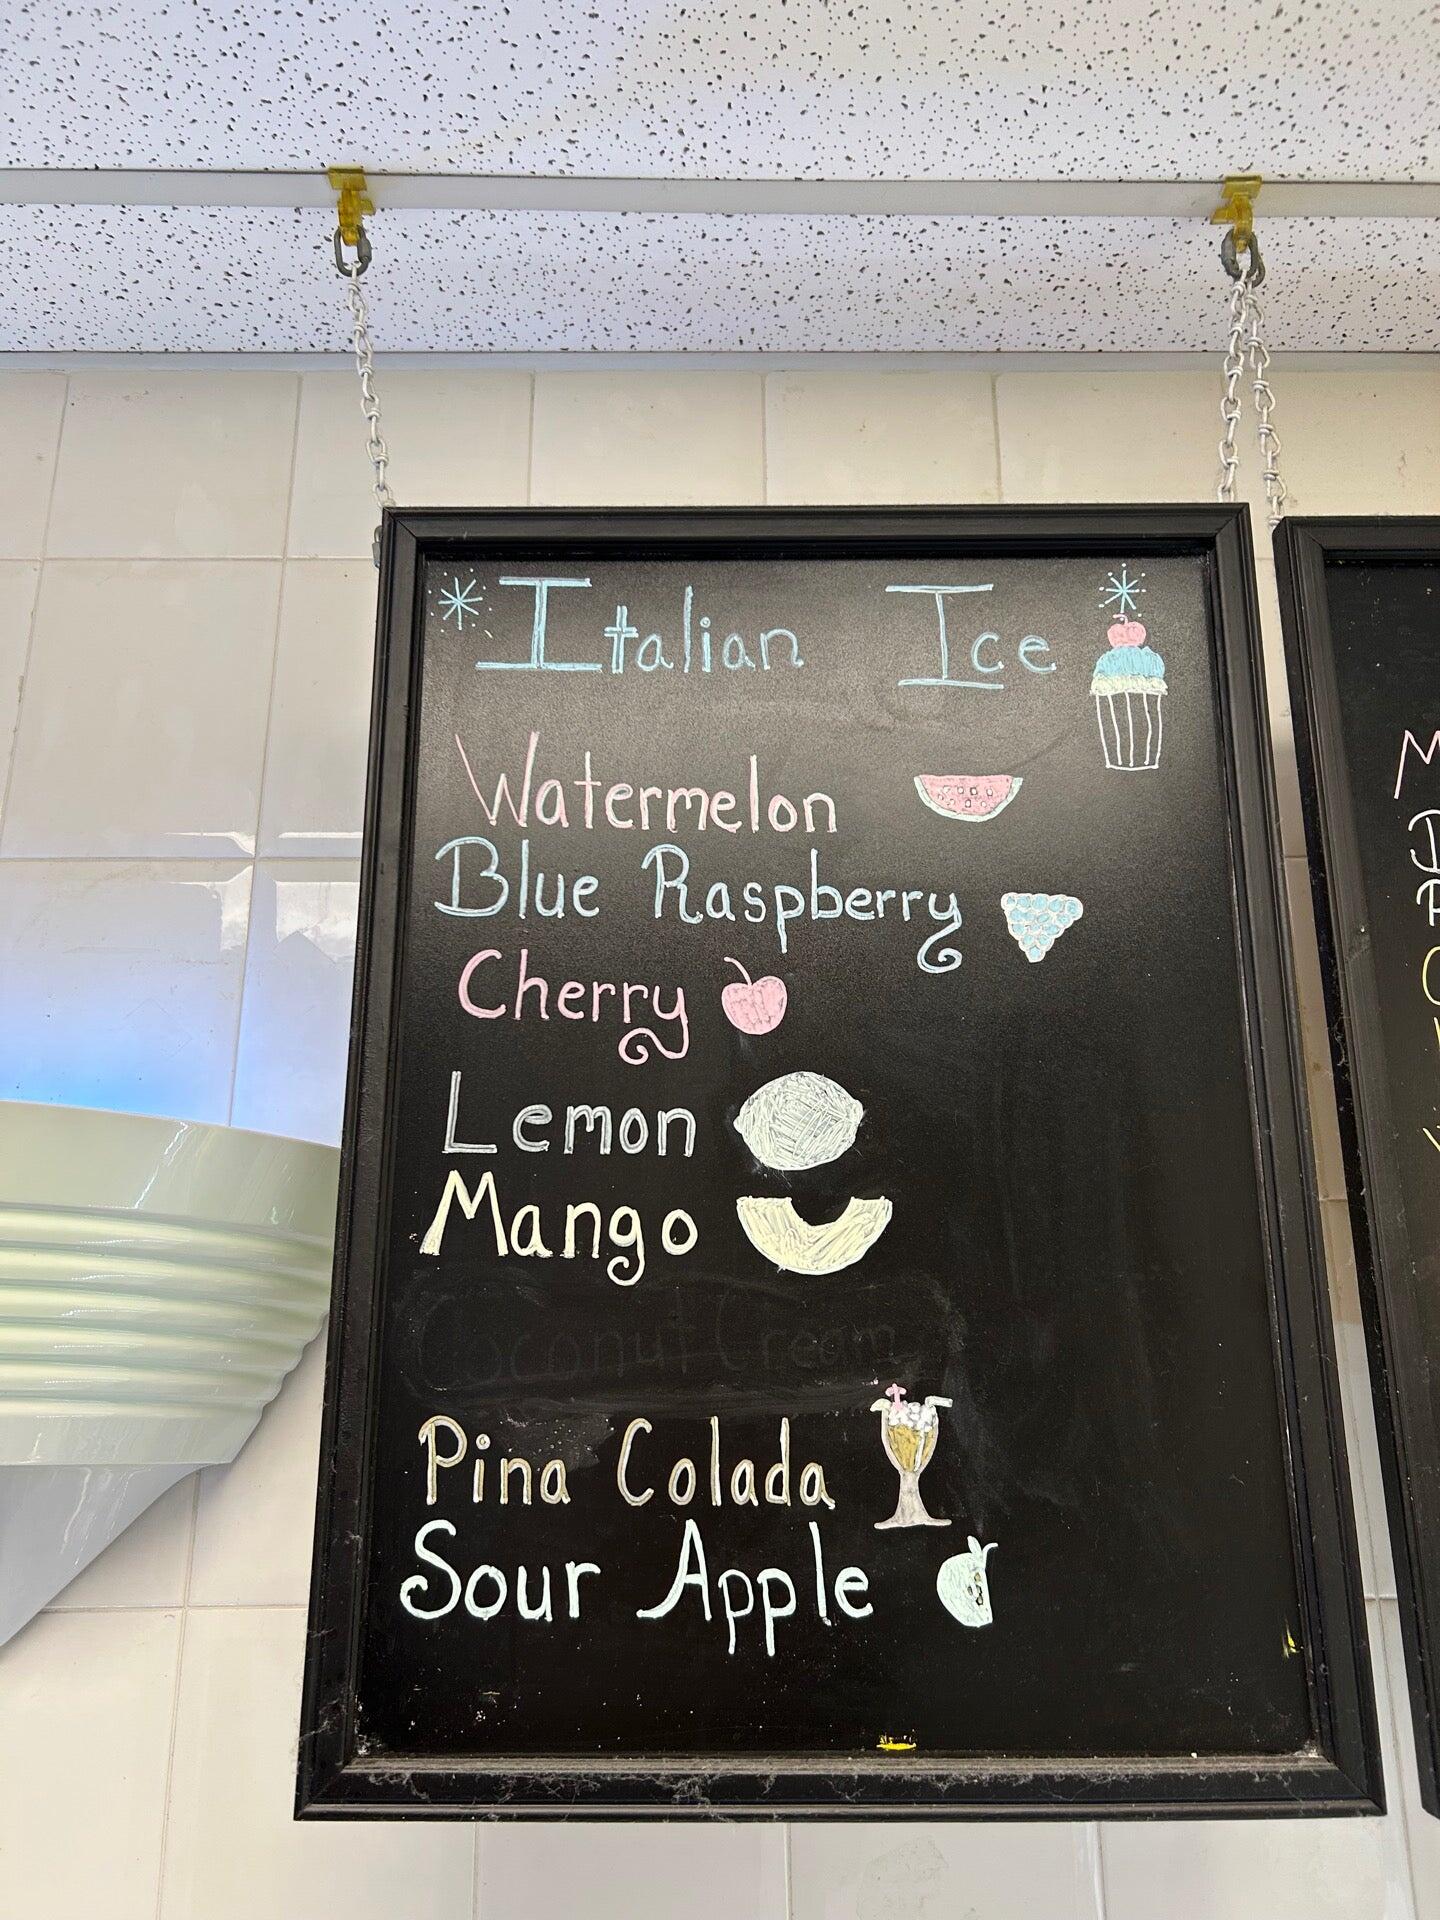 Italian Ice
Watermelon
Blue Raspberry
Cherry
Lemon
Mango
Coconut Cream
Pina Colada
Sour Apple